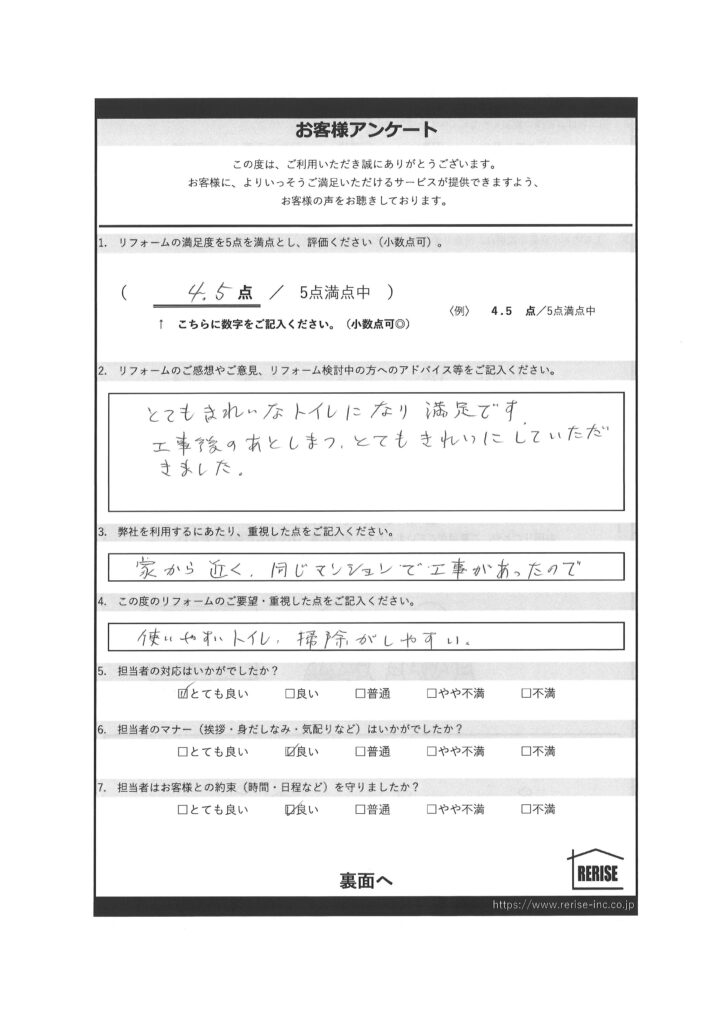 お客様アンケート
この度は、ご利用いただき誠にありがとうございます。
お客様に、よりいっそうご満足いただけるサービスが提供できますよう、
お客様の声をお聴きしております。
1. リフォームの満足度を5点を満点とし、評価ください（小数点可）。
（ 4.5 点 ／ 5点満点中 ）
↑ こちらに数字をご記入ください。（小数点可◎）
〈例〉 4.5 点／5点満点中
2. リフォームのご感想やご意見、リフォーム検討中の方へのアドバイス等をご記入ください。
とてもきれいなトイレになり 満足です.
工事後のあとしまつ、とてもきれいにしていただ
きました。
3. 弊社を利用するにあたり、重視した点をご記入ください。
家から近く、同じマンションで工事があったので
4. この度のリフォームのご要望・重視した点をご記入ください。
使いやすいトイレ、掃除がしやすい。
5. 担当者の対応はいかがでしたか？
☑とても良い □良い □普通 □やや不満 □不満
6. 担当者のマナー（挨拶・身だしなみ・気配りなど）はいかがでしたか？
□とても良い ☑良い □普通 □やや不満 □不満
7. 担当者はお客様との約束（時間・日程など）を守りましたか？
□とても良い ☑良い □普通 □やや不満 □不満
裏面へ
RERISE
https://www.rerise-inc.co.jp